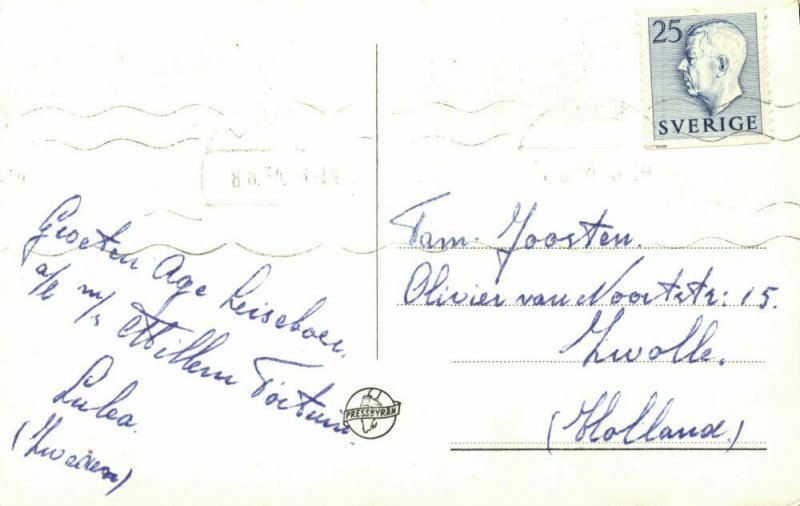 25
SVERIGE
8.8.54
Groeten Age Leiseboer.
a/b m/s Willem Fortuin
Lulea.
(Zweden)
PRESSBYRÅN
Fam. Joosten.
Olivier van Noortstr: 15.
Zwolle.
(Holland.)